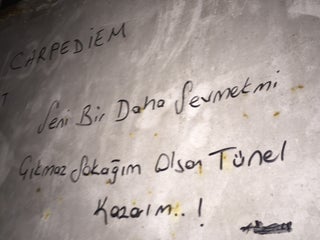 CARPEDIEM
Seni Bir Daha Sevmekmi
Çıkmaz Sokağım Olsan Tünel
Kazarım..!